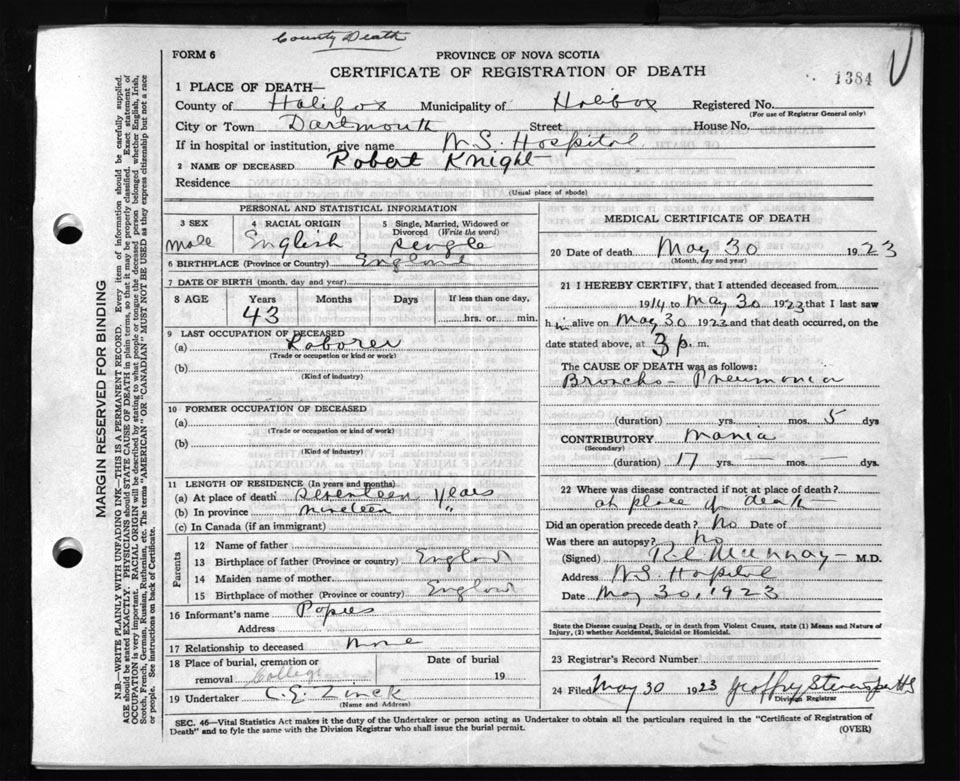 County Death
FORM 6
PROVINCE OF NOVA SCOTIA
CERTIFICATE OF REGISTRATION OF DEATH
1384
1 PLACE OF DEATH—
County of Halifax Municipality of Halifax Registered No.
(For use of Registrar General only)
City or Town Dartmouth Street House No.
If in hospital or institution, give name N.S. Hospital
2 NAME OF DECEASED Robert Knight
Residence
(Usual place of abode)
PERSONAL AND STATISTICAL INFORMATION
3 SEX
male
4 RACIAL ORIGIN
English
5 Single, Married, Widowed or Divorced (Write the word)
single
6 BIRTHPLACE (Province or Country) England
7 DATE OF BIRTH (month, day and year)
8 AGE Years Months Days If less than one day,
43 hrs. or min.
9 LAST OCCUPATION OF DECEASED
(a) Laborer
(Trade or occupation or kind or work)
(b)
(Kind of industry)
10 FORMER OCCUPATION OF DECEASED
(a)
(Trade or occupation or kind of work)
(b)
(Kind of industry)
11 LENGTH OF RESIDENCE (In years and months)
(a) At place of death seventeen years
(b) In province nineteen "
(c) In Canada (if an immigrant)
Parents
12 Name of father
13 Birthplace of father (Province or country) England
14 Maiden name of mother
15 Birthplace of mother (Province or country) England
16 Informant's name Papers
Address
17 Relationship to deceased none
18 Place of burial, cremation or removal College
Date of burial
19
19 Undertaker C.E. Zinck
(Name and Address)
MEDICAL CERTIFICATE OF DEATH
20 Date of death May 30 1923
(Month, day and year)
21 I HEREBY CERTIFY, that I attended deceased from
1914 to May 30 1923 that I last saw
him alive on May 30 1923 and that death occurred, on the
date stated above, at 3 p. m.
The CAUSE OF DEATH was as follows:
Broncho-Pneumonia
(duration) yrs. mos. 5 dys
CONTRIBUTORY Mania
(Secondary)
(duration) 17 yrs. — mos. — dys.
22 Where was disease contracted if not at place of death?
at place of death
Did an operation precede death? No Date of
Was there an autopsy? No
(Signed) M.D.
Address N.S. Hospital
Date May 30, 1923
State the Disease causing Death, or in death from Violent Causes, state (1) Means and Nature of
Injury, (2) whether Accidental, Suicidal or Homicidal.
23 Registrar's Record Number
24 Filed May 30 1923 Geoffrey
Division Registrar
SEC. 46—Vital Statistics Act makes it the duty of the Undertaker or person acting as Undertaker to obtain all the particulars required in the "Certificate of Registration of
Death" and to fyle the same with the Division Registrar who shall issue the burial permit.
(OVER)
MARGIN RESERVED FOR BINDING
N.B.—WRITE PLAINLY WITH UNFADING INK—THIS IS A PERMANENT RECORD. Every item of information should be carefully supplied.
AGE should be stated EXACTLY. PHYSICIANS should STATE CAUSE OF DEATH in plain terms, so that it may be properly classified. Exact statement of
OCCUPATION is very important. RACIAL ORIGIN will be described by stating to what people or tongue the deceased person belonged whether English, Irish,
Scotch, French, German, Russian, Ruthenian, etc. The terms "AMERICAN" OR "CANADIAN" MUST NOT BE USED as they express citizenship but not a race
or people. See instructions on back of Certificate.